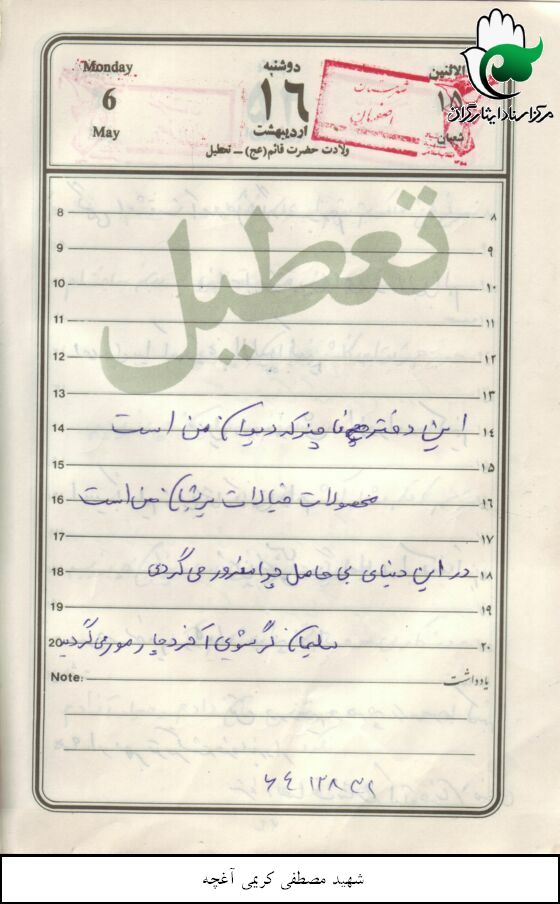 مرکز اسناد ایثارگران
Monday دوشنبه الاثنین
6 ۱۶ ۱۵
May اردیبهشت شعبان
ولادت حضرت قائم (عج) ــ تعطیل
اصفهان
تعطیل
8 ۸
9 ۹
10 ۱۰
11 ۱۱
12 ۱۲
13 ۱۳
14 این دفتر ناچیز که دیوان من است ۱۴
15 ۱۵
16 محصولات خیالات پریشان من است ۱۶
17 ۱۷
18 در این دنیای بی حاصل چرا مغرور می گردی ۱۸
19 ۱۹
20 سلیمان گر شوی آخر مور می گردی ۲۰
Note: یادداشت
شهید مصطفی کریمی آغچه